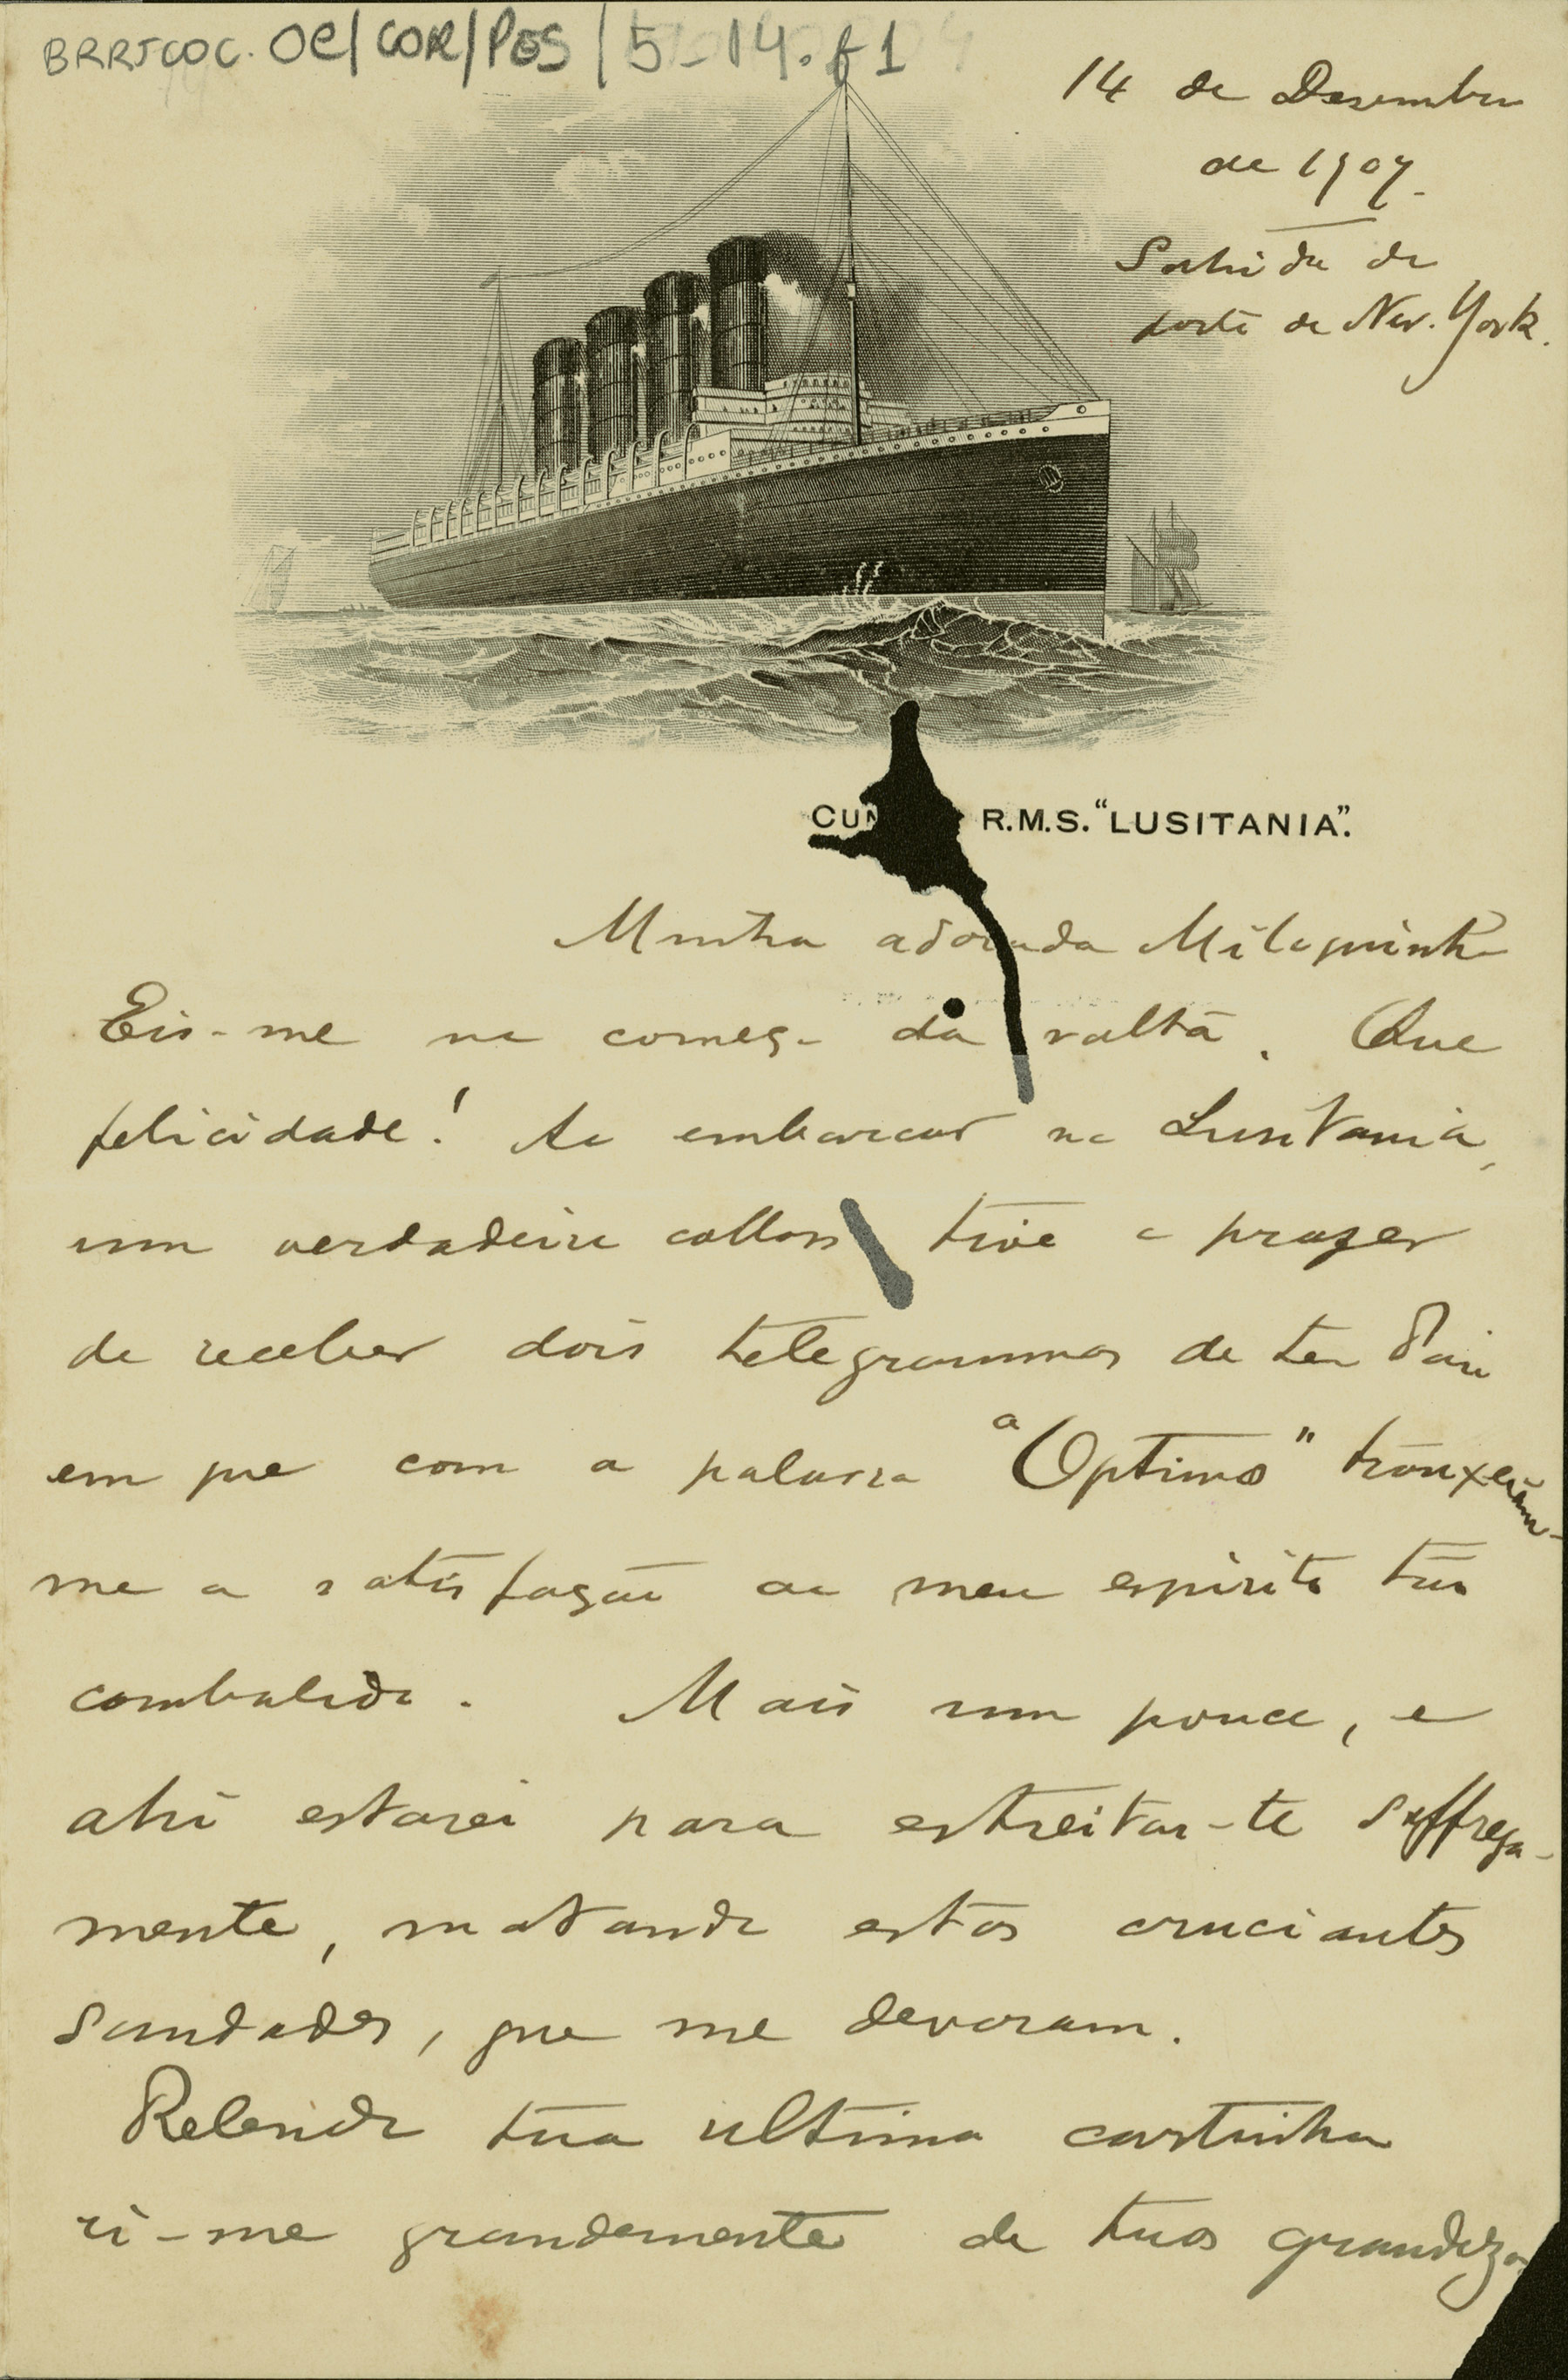 BRRJCOC. OC/COR/PES/5-14.f1
14 de Dezembro
de 1907.
Sahida do
porto de New. York.
R.M.S. "LUSITANIA".
Minha adorada Miloquinha
Eis-me no começo da volta. Que
felicidade! Ao embarcar no Lusitania,
um verdadeiro colosso tive o prazer
de receber dois telegrammas de teu Pai
em que com a palavra "Optimo" trouxeram-
me a satisfação ao meu espirito tão
combalido. Mais um pouco, e
ahi estarei para estreitar-te soffrega-
mente, matando estas cruciantes
saudades, que me devoram.
Relendo tua ultima cartinha
ri-me grandemente de tuas grandezas